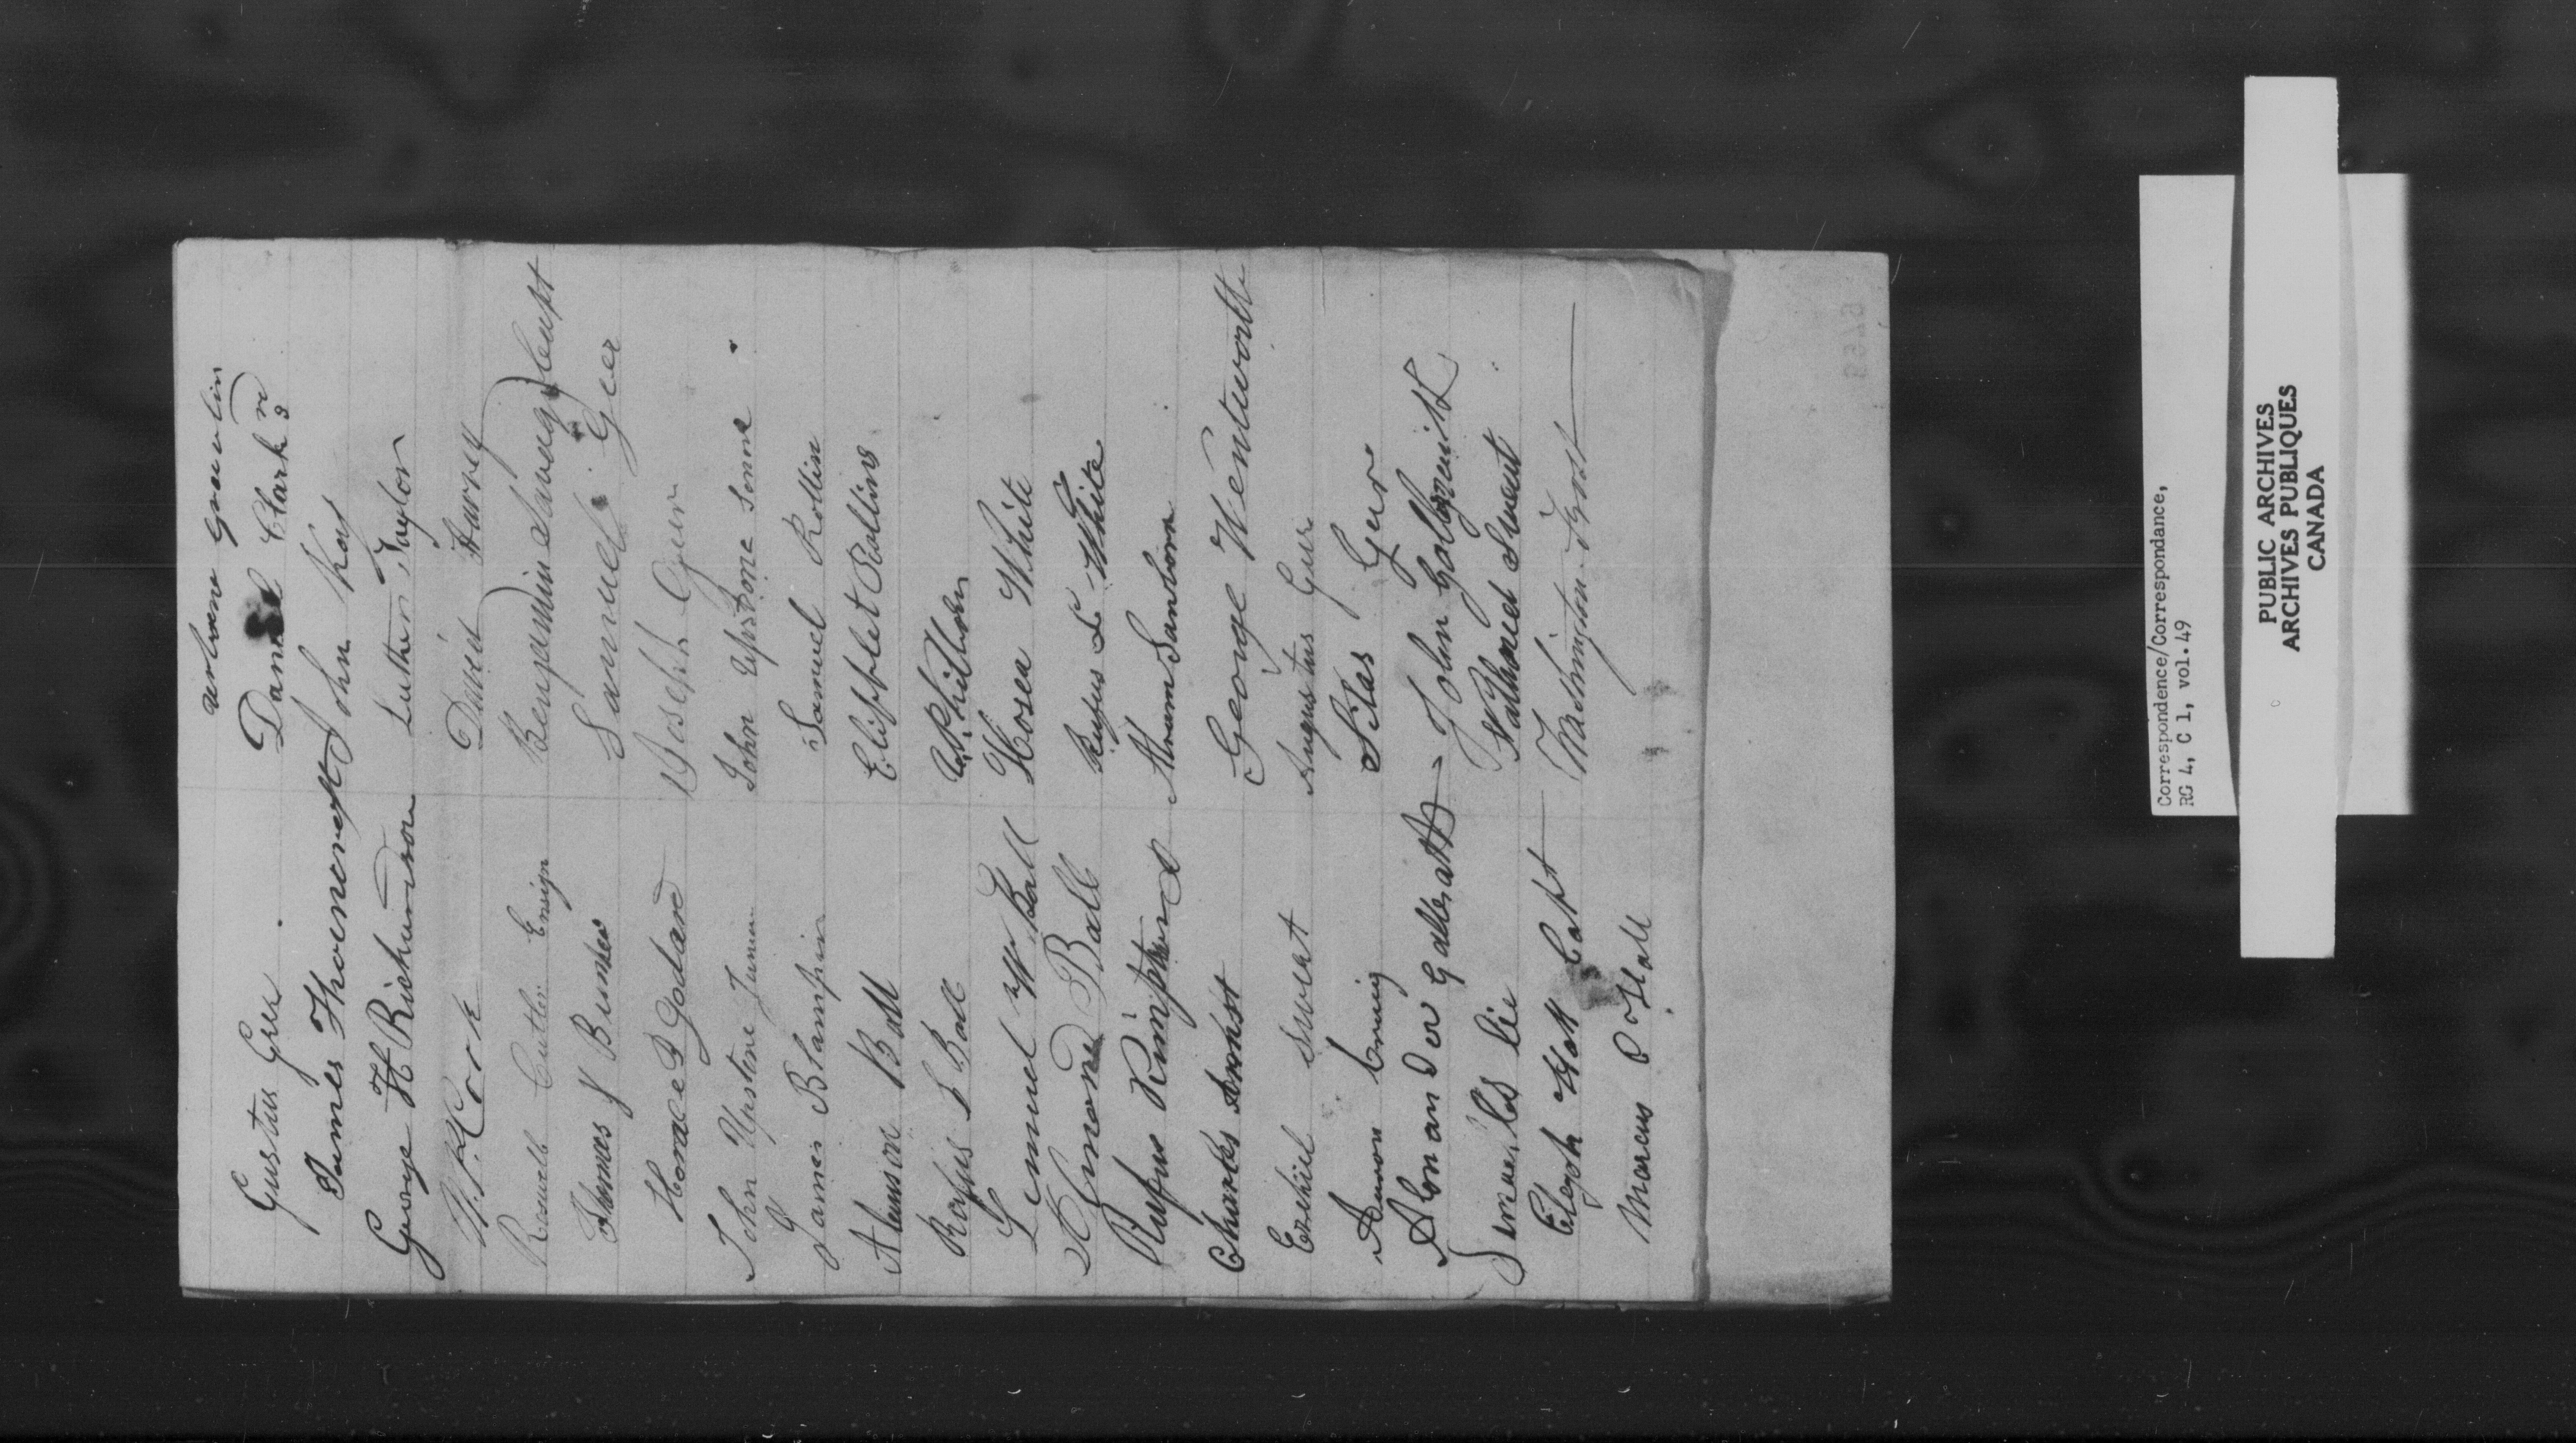 Gustus Geer
James Thovencroft
George H Richardson
Roswell Cutler Ensign
Thomas J Bunker
Horace B Godard
John Upstone Junior
James Blampin
Alanson Ball
Rufus S Ball
Lemuel W Ball
Edmond Ball
Rufus Kimpton
Charles
Ezekiel Sweat
Alonandor Gallbraith
Lee
Hall Capt
Marcus D Hall
Daniel Clark 3rd
John Kay
Luther Taylor
David Harvey
Benjamin Savage Capt
Samuel Geer
Joseph Geer
John Upstone Senr
Samuel Rollin
Elipplet Rollins
Hosea White
Rufus L White
Abram Sanborn
George Wentworth
Augustus Geer
Silas Geer
John
Nathaniel Sweat
Washington Frost
6769
Correspondence/Correspondance,
RG 4, C 1, vol. 49
PUBLIC ARCHIVES
ARCHIVES PUBLIQUES
CANADA